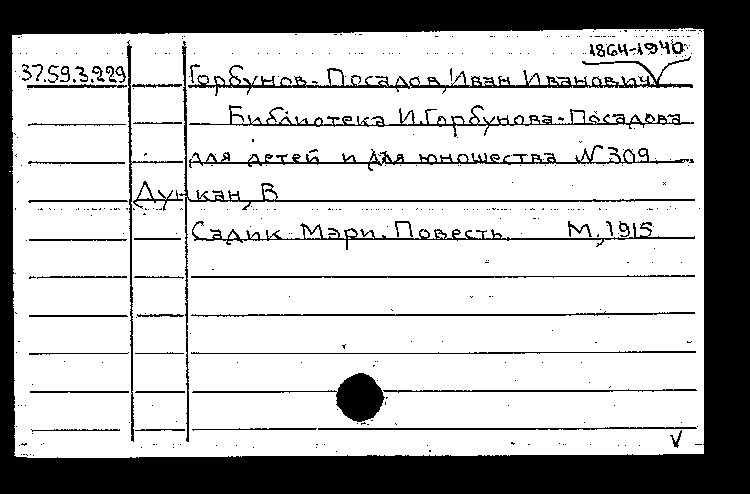 1864-1940
37.59.3.229 Горбунов-Посадов, Иван Иванович
Библиотека И.Горбунова-Посадова
для детей и для юношества N 309.
Дункан, В
Садик Мэри. Повесть. М., 1915
V